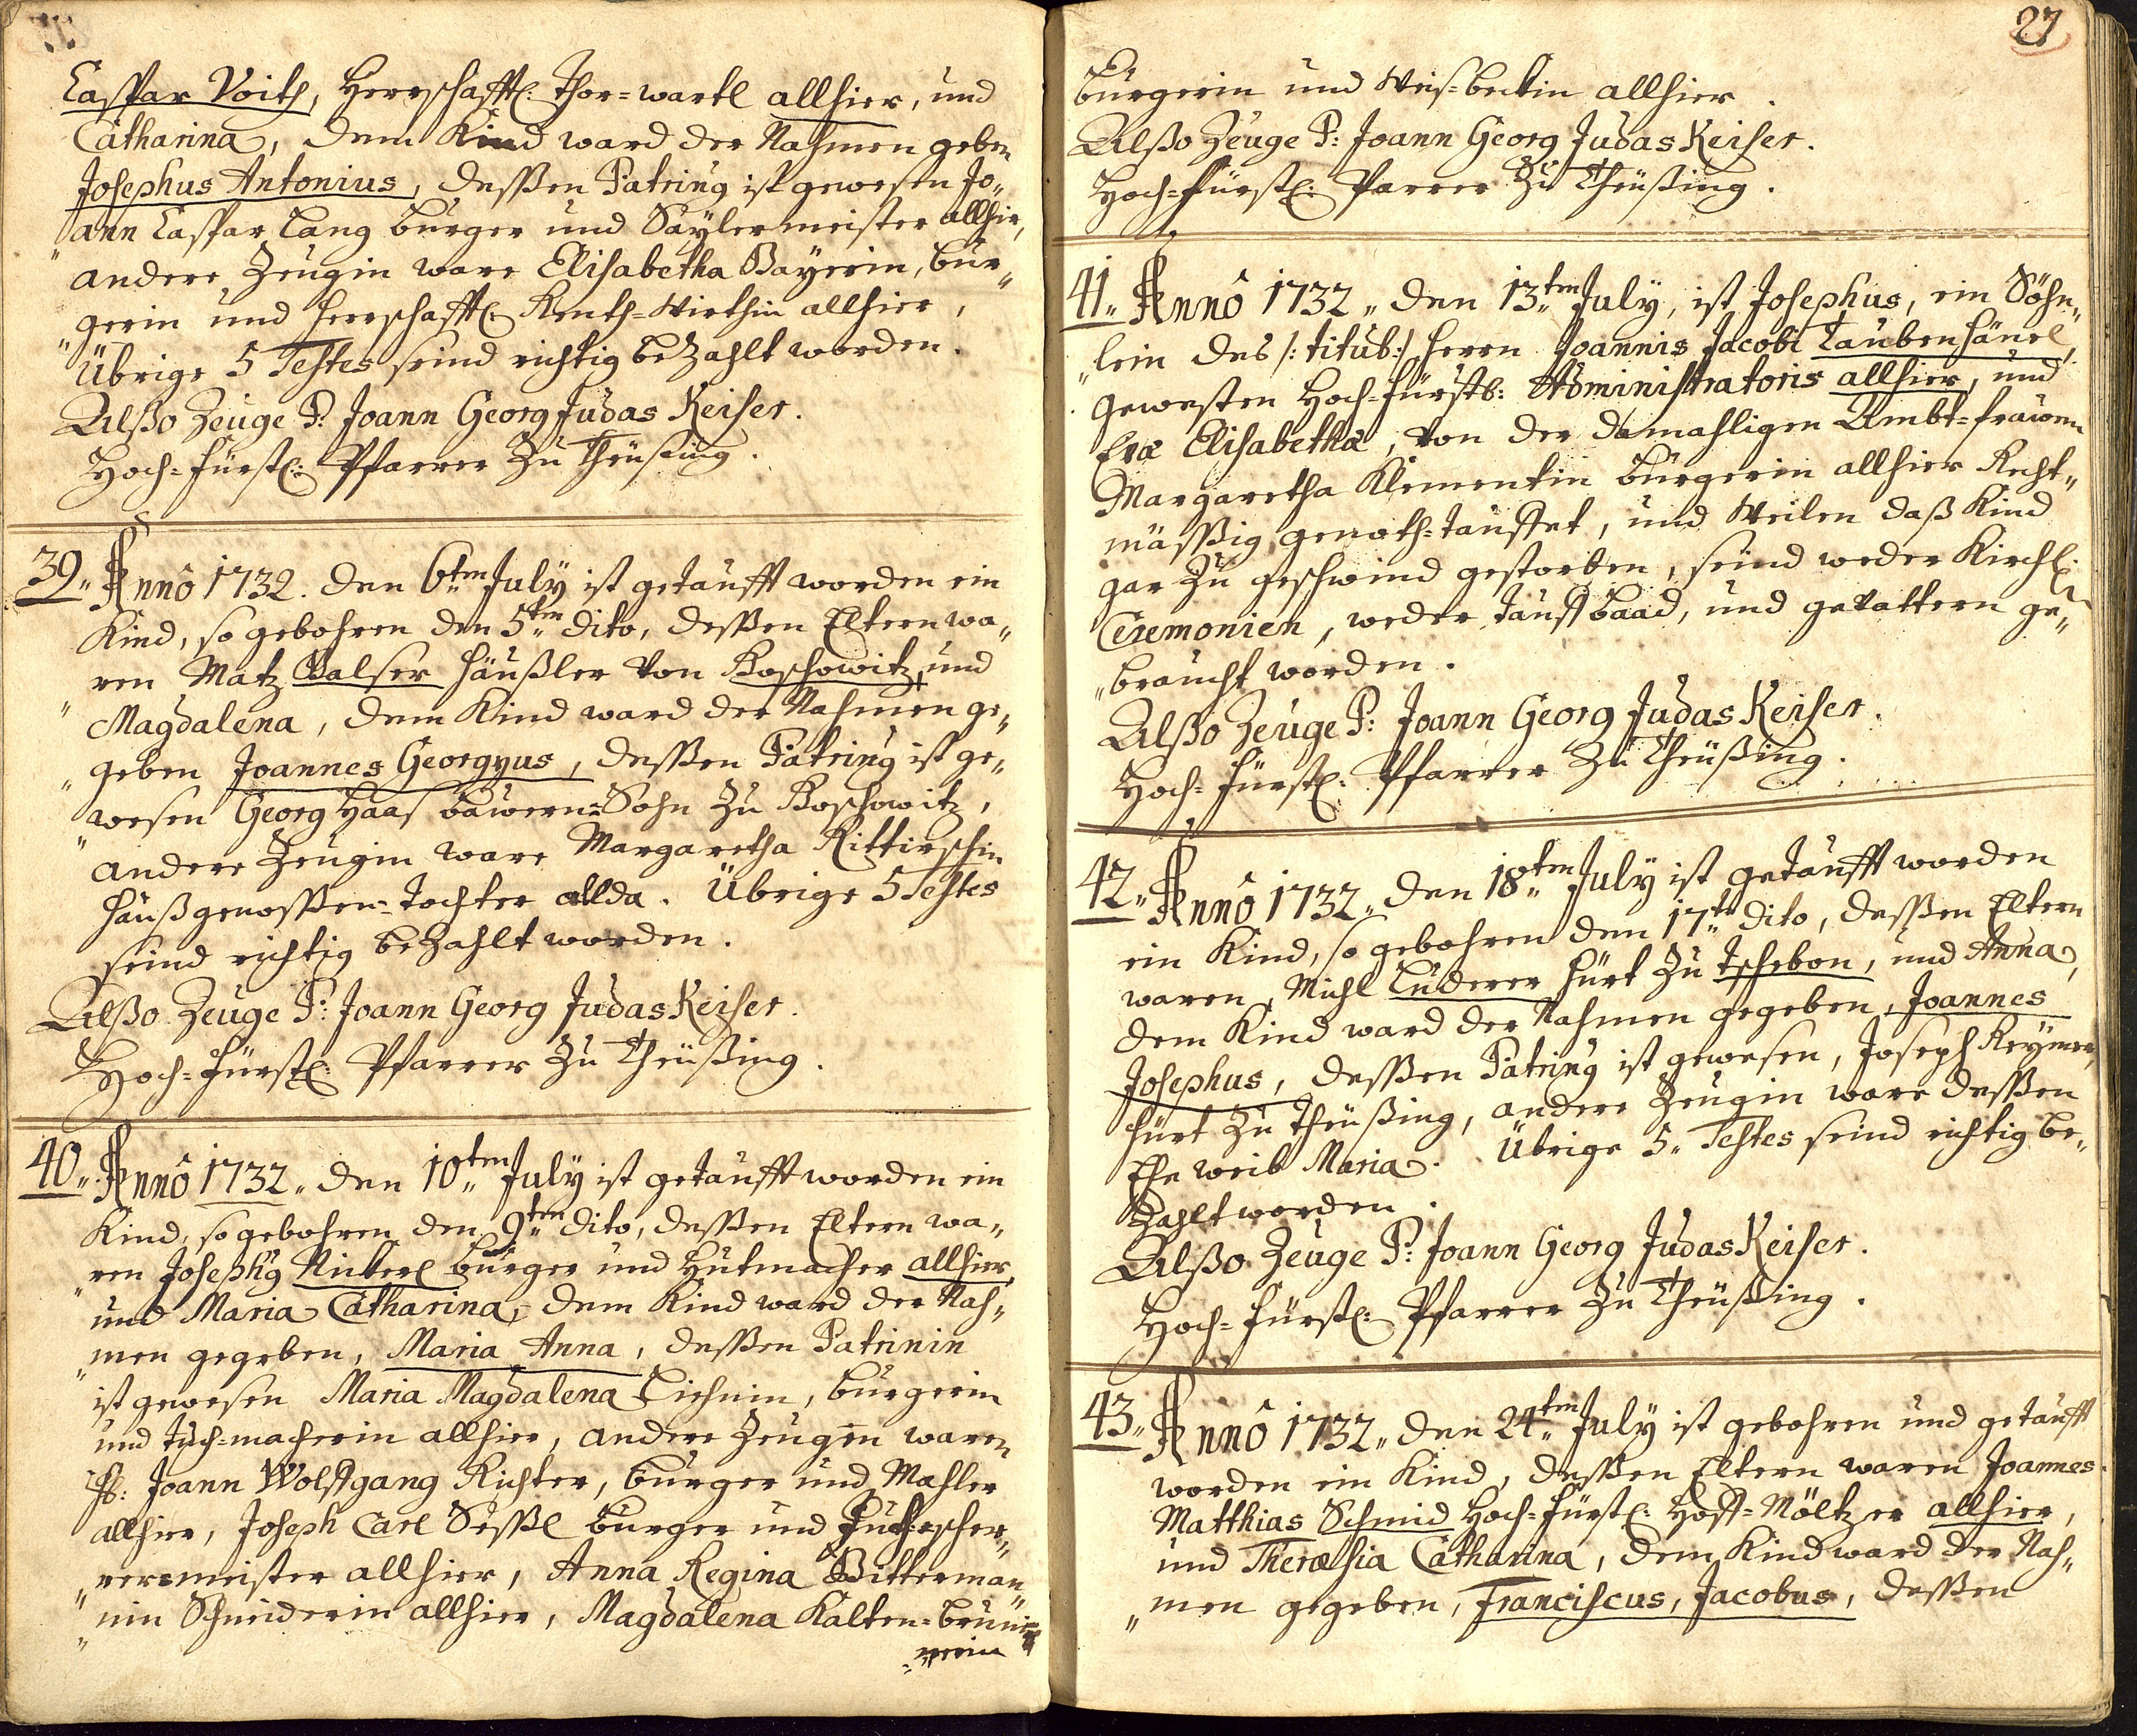 Caspar Voith, Herrschafftl: Thor=wartl allhier, und
Catharina, dem Kind ward der Nahmen geben
Josephus Antonius, deßen Patrinus ist gewesen Jo„
„ann Caspar Lang burger und Saylermeister allhier,
andere Zeugin ware Elisabetha Bayerin, bur„
„gerin und herrschafftl: Renth=Wirthin allhier,
„Übrige 5 Testes seind richtig bezahlt worden.
Alßo Zeuge P: Joann Georg Judas Keiser.
Hoch=fürstl: Pfarrer Zu Theüßing.
39„ Annô 1732. den 6ten July ist getaufft worden ein
Kind, so gebohren den 5ten dito, deßen Eltern wa„
„ren Matz Balser häußler von Koschowitz, und
Magdalena, dem Kind ward der Nahmen ge„
„geben Joannes Georgyus, deßen Patrinus ist ge„
„wesen Georg Haas bawern=Sohn Zu Koschowitz,
andere Zeugin ware Margaretha Rittirschin
haußgenoßen=tochter allda. Übrige 5 Testes
seind richtig bezahlt worden.
Alßo Zeuge P: Joann Georg Judas Keiser.
Hoch=fürstl: Pfarrer Zu Theüßing.
40„ Annô 1732„ den 10„ten July ist getaufft worden ein
Kind, so gebohren den 9ten dito, deßen Eltern wa„
„ren Josephus Nickerl burger und Hutmacher allhier,
und Maria Catharina, dem Kind ward der Nah„
„men gegeben, Maria Anna, deßen Patrinin
ist gewesen Maria Magdalena Ziehnin, burgerin
und tuch=macherin allhier, andere Zeugen waren
H: Joann Wolffgang Richter, burger und Mahler
allhier, Joseph Carl Süßl burger und
„meister allhier, Anna Regina Bitterman„
„nin Schneiderin allhier, Magdalena Kalten=brun„
27
burgerin und Weiß=bectin allhier.
Alßo Zeuge P: Joann Georg Judas Keiser.
Hoch=fürstl: Pfarrer Zu Theüßing.
41„ Annô 1732„ den 13„ten July, ist Josephus, ein Söhn„
„lein des /: titub:/ Herrn Joannis Jacobi Taubenhänel,
gewesten Hoch=fürstl: Administratoris allhier, und
Evæ Elisabethæ, von der damahligen Ambt=frawen
Margaretha Klementin burgerin allhier Recht„
mäßig genoth=tauffet, und Weilen daß Kind
gar zu geschwind gestorben, seind weder Kirchl:
Ceremonien, weder tauffbaad, und gevattern ge„
„braucht worden.
Alßo Zeuge P: Joann Georg Judas Keiser.
Hoch=fürstl: Pfarrer Zu Theüßing.
42„ Annô 1732„ den 18„ten July ist getaufft worden
ein Kind, so gebohren den 17„te dito, deßen Eltern
waren, Michl Luderer hürt Zu Tschebon, und Anna,
dem Kind ward der Nahmen gegeben, Joannes
Josephus, deßen Patrinus ist gewesen, Joseph Reymer,
hürt Zu Theüßing, andere Zeugin ware deßen
Ehe weib Maria. Übrige 5„ Testes seind richtig be„
Zahlt worden.
Alßo Zeuge P: Joann Georg Judas Keiser.
Hoch=fürstl: Pfarrer Zu Theüßing.
43„ Annô 1732„ den 24„ten July ist gebohren und getaufft
worden ein Kind, deßen Eltern waren Joannes
Matthias Schmid Hoch=fürstl: Hoff=Mältzer allhier,
und Theræsia Catharina, dem Kind ward der Nah„
„men gegeben, Franciscus, Jacobus, deßen